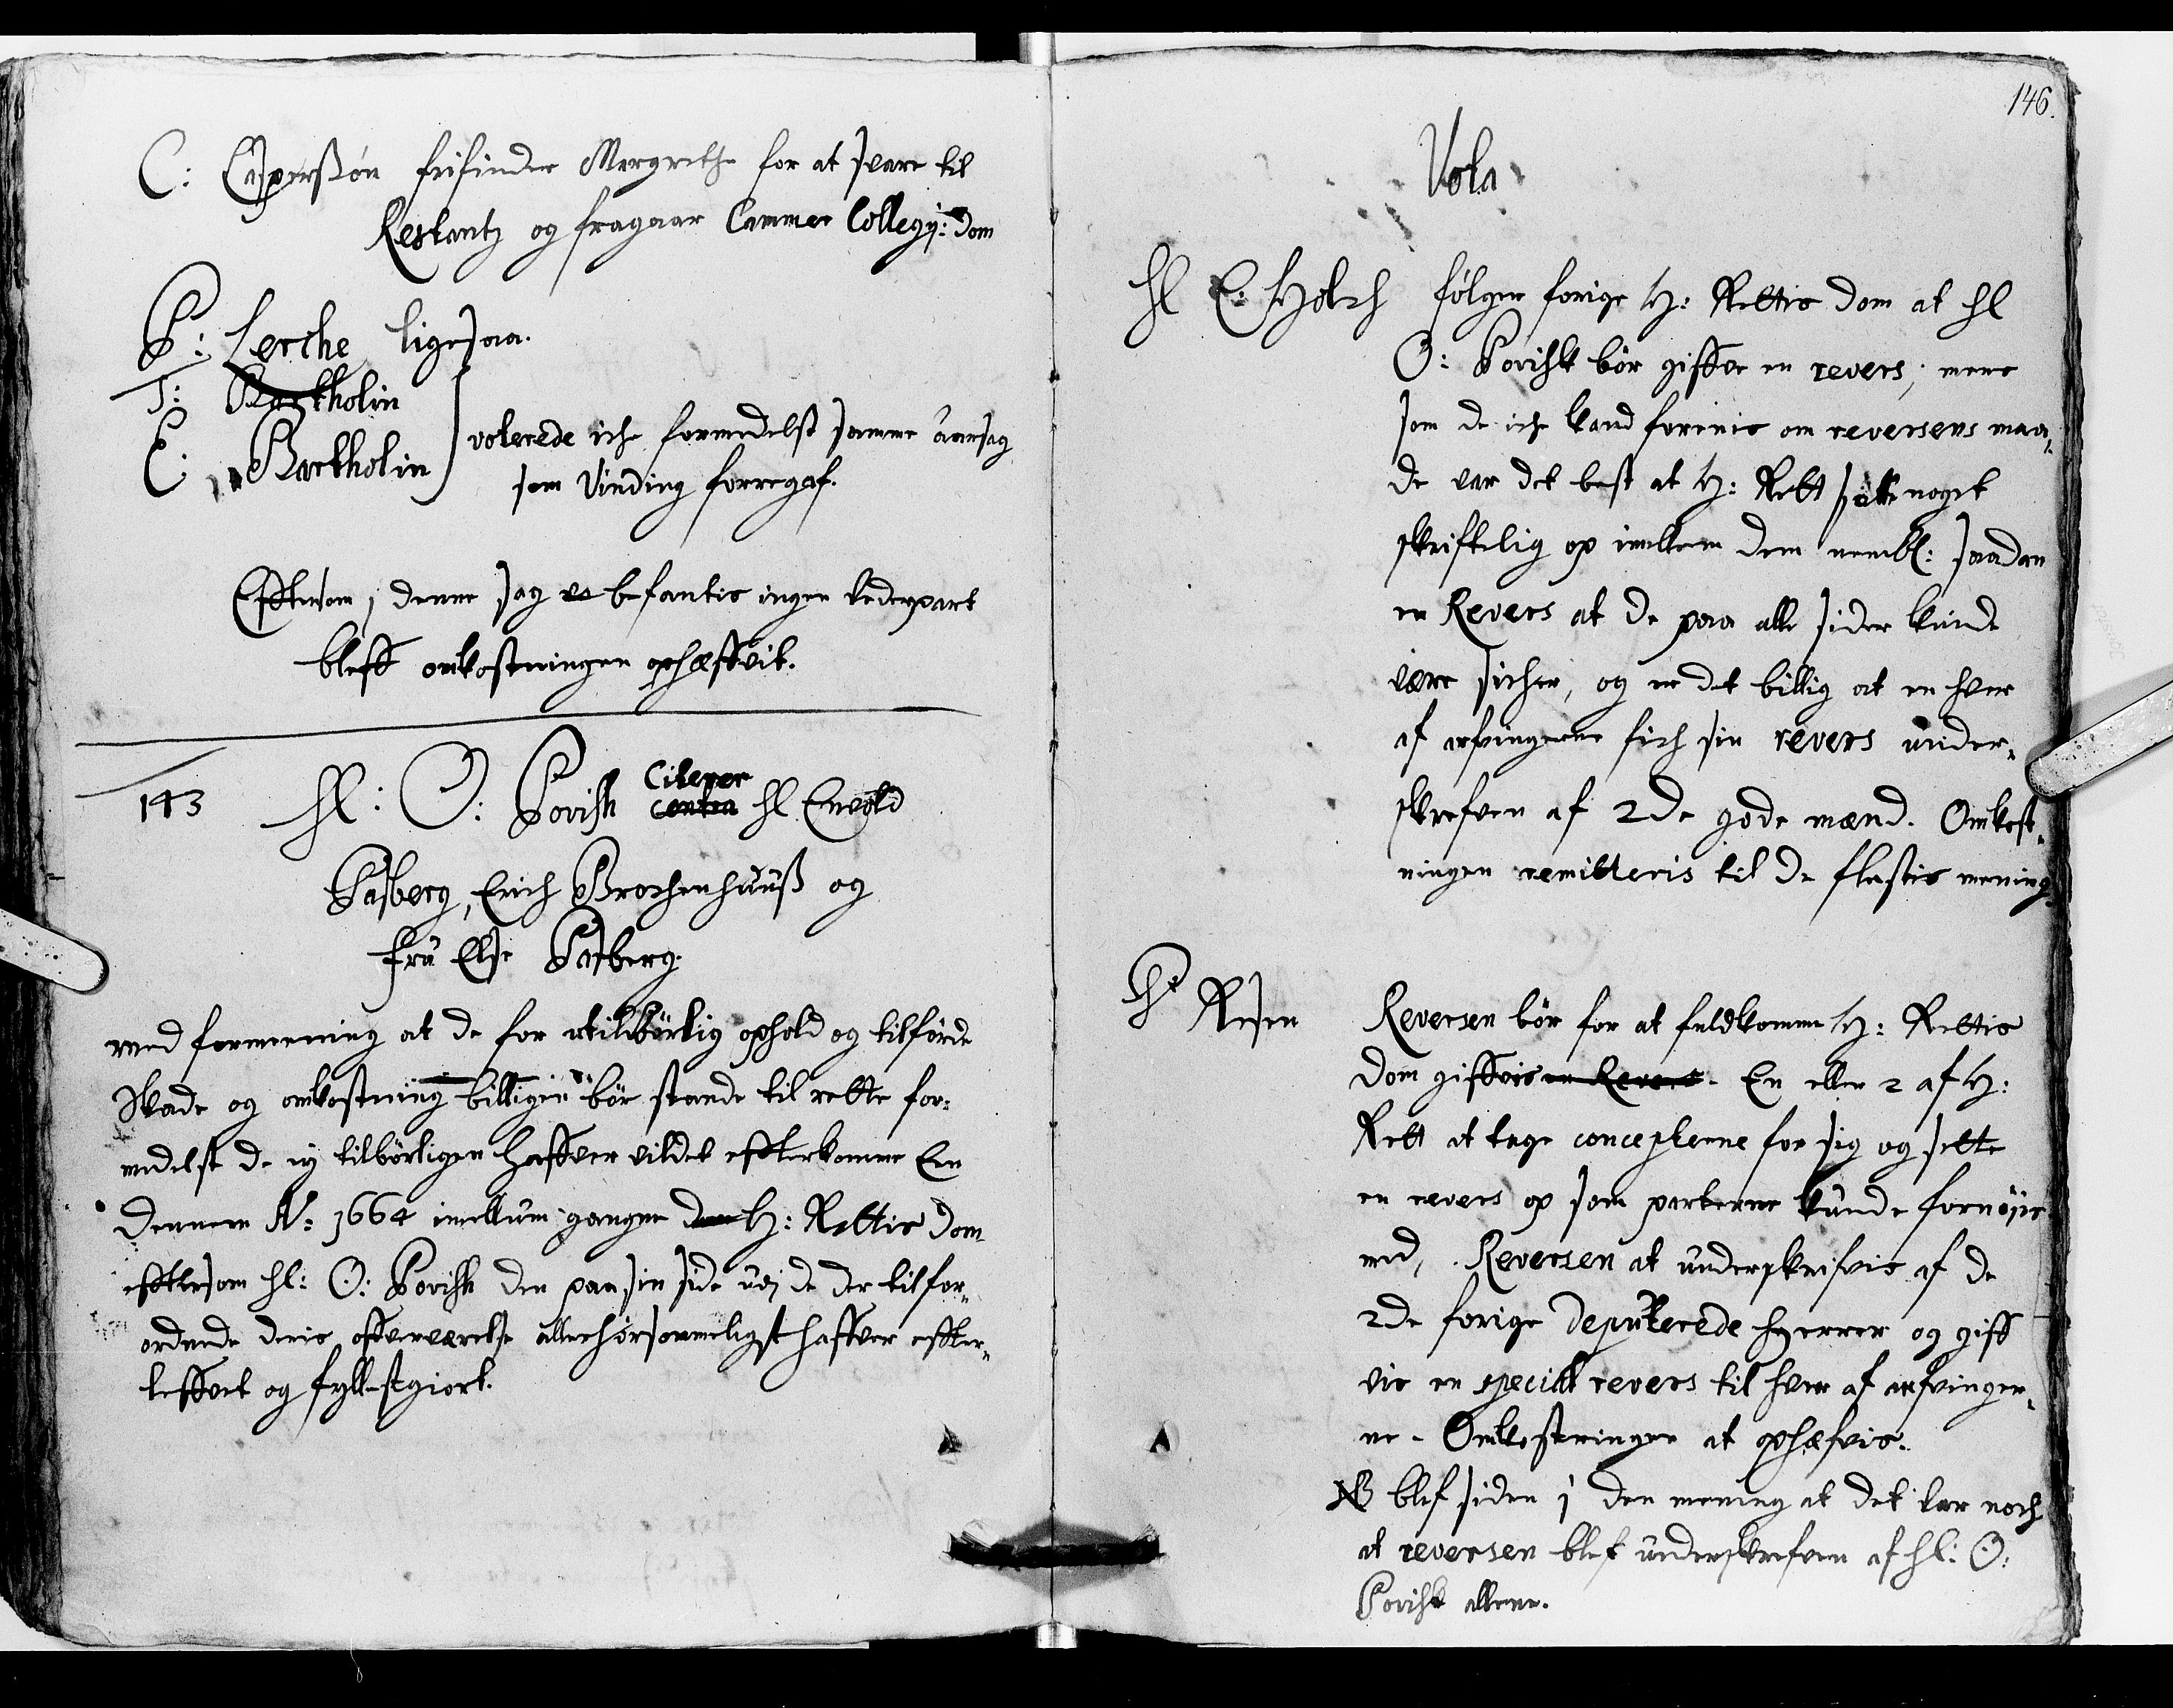 C: Casperssøn frifinder Margrethe for at svare til
Restantz og fragaar Cammer Collegij: dom
P: Lerche ligesaa.
T: Bartholin
E: Bartholin
voterede iche formedelst samme aarsag
som Vinding forregaf.
Efftersom j denne sag befantis ingen vederpart
bleff omkostningen ophæffvit.
143 Hl: O: Povisk Citerer contra Hl Envold
Parsberg, Erich Brochenhuuss og
Fru Else Parsberg
med formeening at de for utilbørlig ophold og tilførde
Skade og omkostning billigen bør stande til rette for-
medelst de ej tilbørligen haffver vildet effterkomme Een
dennem Ao: 1664 imellum gangen dom H: Rettis dom
efftersom Hl: O: Povisk den paa sin side udj de der tilfor-
ordnede deris offverværelse allerhørsommeligst haffver effter-
leffvet og fyllestgiort.
146.
Vota
Hl C: Holch følger forige H: Rettis dom at Hl
O: Povisk bør giffve en revers; mens
som de iche kand foreenis om reversens maa-
de var det best at H: Rett satte noget
skriftelig op imellem dem nembl: saadan
en Revers at de paa alle sider kunde
være sicher, og er det billig at en hver
af arfvingerne fich sin revers under-
skrefven af 2de gode mænd. Omkost-
ningen remitteris til de fleestis mening.
Hr Resen Reversen bør for at fuldkomme H: Rettis
dom giffvis en Revers. En eller 2 af H:
Rett at tage concepterne for sig og sette
en revers op som parterne kunde fornøjes
med, Reversen at underskrifvis af de
2de forige deputerede Herrer og giff
vis en speciall revers til hver af arfvinger-
ne - Omkostningen at ophæfvis.
NB blef siden j den mening at det var noch
at reversen blef underskrefven af Hl: O:
Povisk allene.